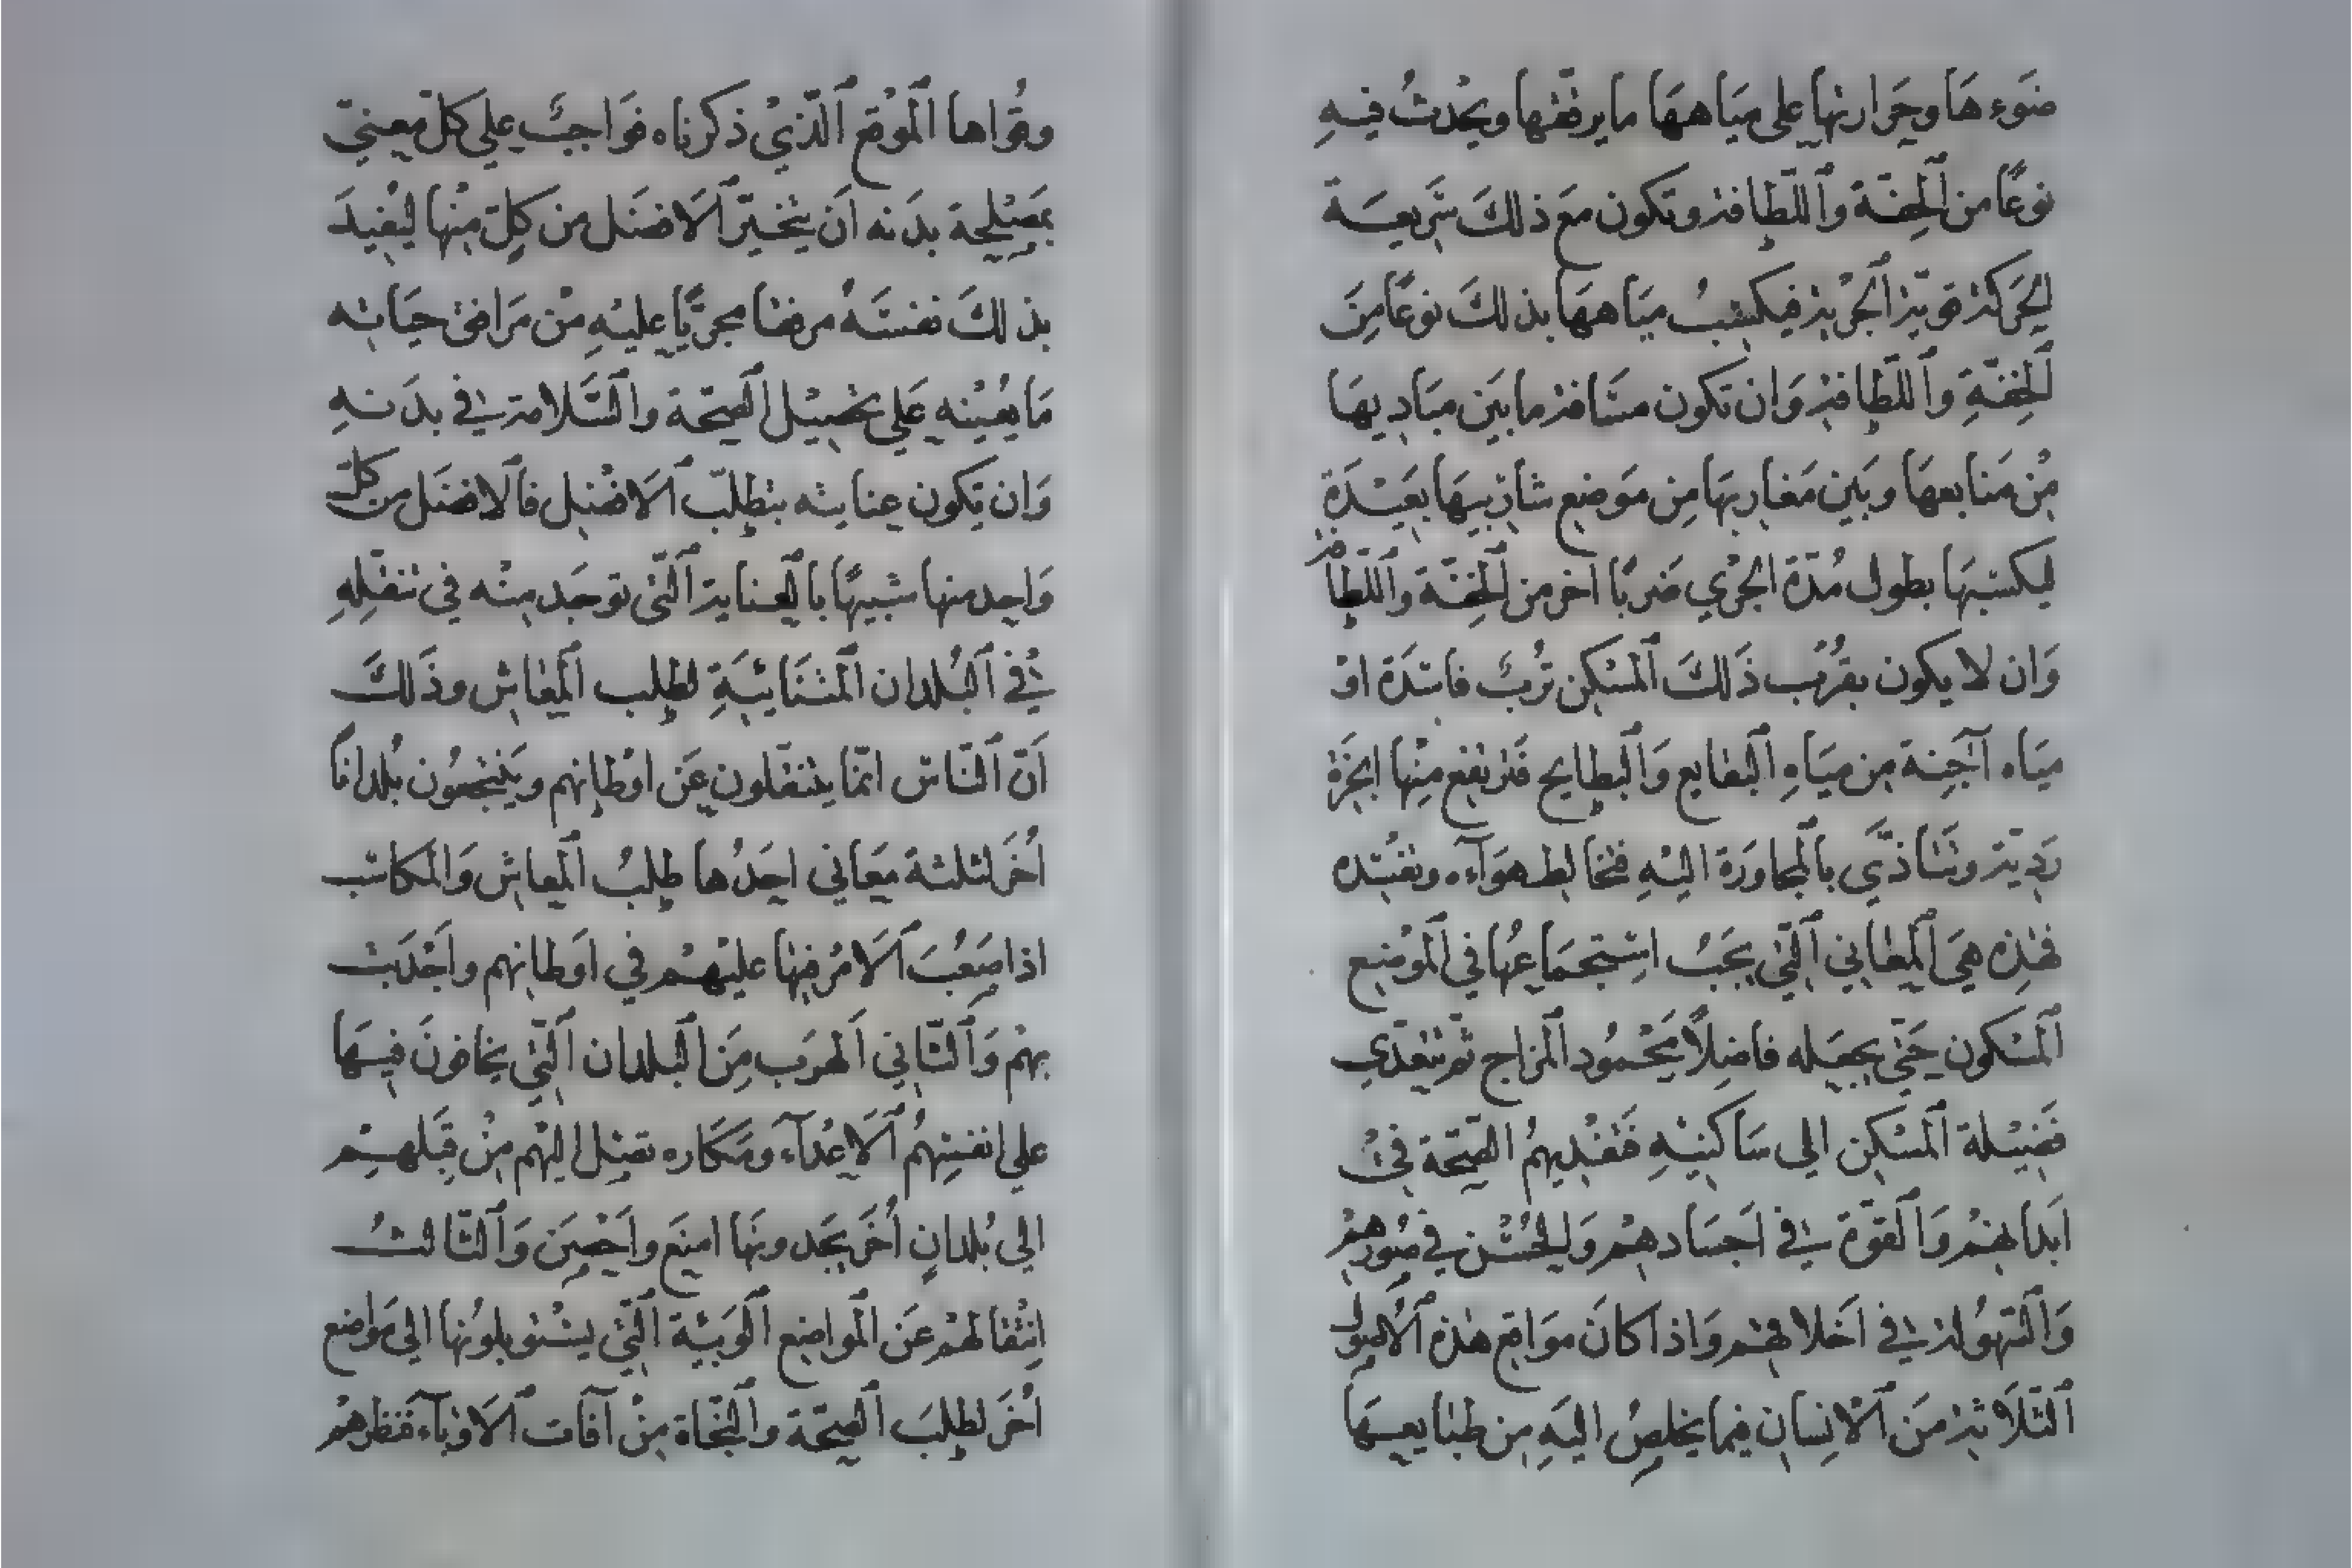 ضَوءهَا وحَرارتها على مِيَاههَا ما يرققها ويحْدثُ فيهِ
نوعًا من اَلخِفّة واَللّطافة وتكون مَع ذلكَ سَريعَة
الحَركة قويّة اَلجْرية فيكسبُ ميَاههَا بذلكَ نوعًا مِنَ
اَلخِفّةِ واَللّطافة وَان تكون مسَافة مابَين مبَاديها
مِنْ مَنابعهَا وبَين مَغاربهَا مِن مَوضع شاربيهَا بَعيْدَة
ليكسبهَا بطول مُدّة الجَرْي ضَربًا آخر من اَلخِفّة واَللّطافة
وَان لا يكون بقرُب ذَلكَ اَلمسْكن تُربٌ فاسَدَة اوْ
ميَاه آجِنة مِن ميَاهِ اَلبقايع وَاَلبطايح فَترتفع مِنْها ابخَرة
رَديّة وتتَأذّي باَلمجاورَة اليْهِ فتخالط هوَآءه وتفسْده
فهٰذِه هيَ اَلمعَاني اَلّتي يجَبُ استجمَاعُها في اَلموْضع
اَلمسْكون حَتّي يجعَله فاضِلاً محَمُود اَلمزاج ثمّ تتعَدّي
فَضيْلة اَلمسْكن الى سَاكنيْهِ فَتفْيدهمُ الصّحّة فيْ
اَبدانهمْ وَاَلقوّة في اَجسَادهمْ وَالحُسْن في صُورهمْ
وَاَلسّهُولة في اَخلاقهمْ وَاذا كانَ موَاقع هٰذه اَلاُصول
اَلثّلاَثة مَن اَلاْنِسان فيما يخلصُ اليَهِ مِن طبَايعهَا
وقُواها اَلموْقع اَلّذيْ ذكرناه فوَاجبٌ علي كلّ معنيّ
بمَصْلحة بدَنه اَن يتخيّر اَلاَفضَل من كلّ مِنْها ليُفيدَ
بذلكَ نفسَهُ مرفقا مجريًّا عليْهِ مْن مَرافق حيَاته
مَا يعُيْنه عَلي تحَصيْل اَلصّحّة واَلسَّلامة في بدَنهِ
وَان تكون عنايته بتطلّب اَلاَفضْل فاَلاَفضَل من كلّ
وَاحِد منها شبيهًا باَلعنايَة اَلّتى توجَد منْه في تنقّلِهِ
في اَلبُلدان اَلمتنَائيَةِ لطلب اَلمعَاش وذَلكَ
اَنّ اَلنّاسَ انّما يتنقّلون عَن اوْطانهم ويَنتجعُون بُلدانًا
اُخَر لثلثة معَاني احَدُها طلبُ اَلمعاش وَاَلمكاسب
اذا صَعُبَ اَلاَمْر فيْها عليْهمْ في اَوطانهم واَجْدَبت
بهمْ وَاَلثّاني اَلهرَب مِنَ اَلبلدان اَلّتي يخافونَ فيهَا
على انفسِهمُ اَلاَعْدآء ومَكاره تصْل اليْهم مِنْ قِبَلهمْ
الي بُلدانٍ اُخَر يجَدونهَا امنَع واَحْصَن وَاَلثّالثُ
انِتْقالهمْ عَن اَلمواضع اَلوَبئة اَلّتي يستوبلوُنها الي مَواضع
اُخَر لطلبَ اَلصّحّة واَلنّجَاة مِنْ آفات اَلاَوْبآء فنظرهمْ